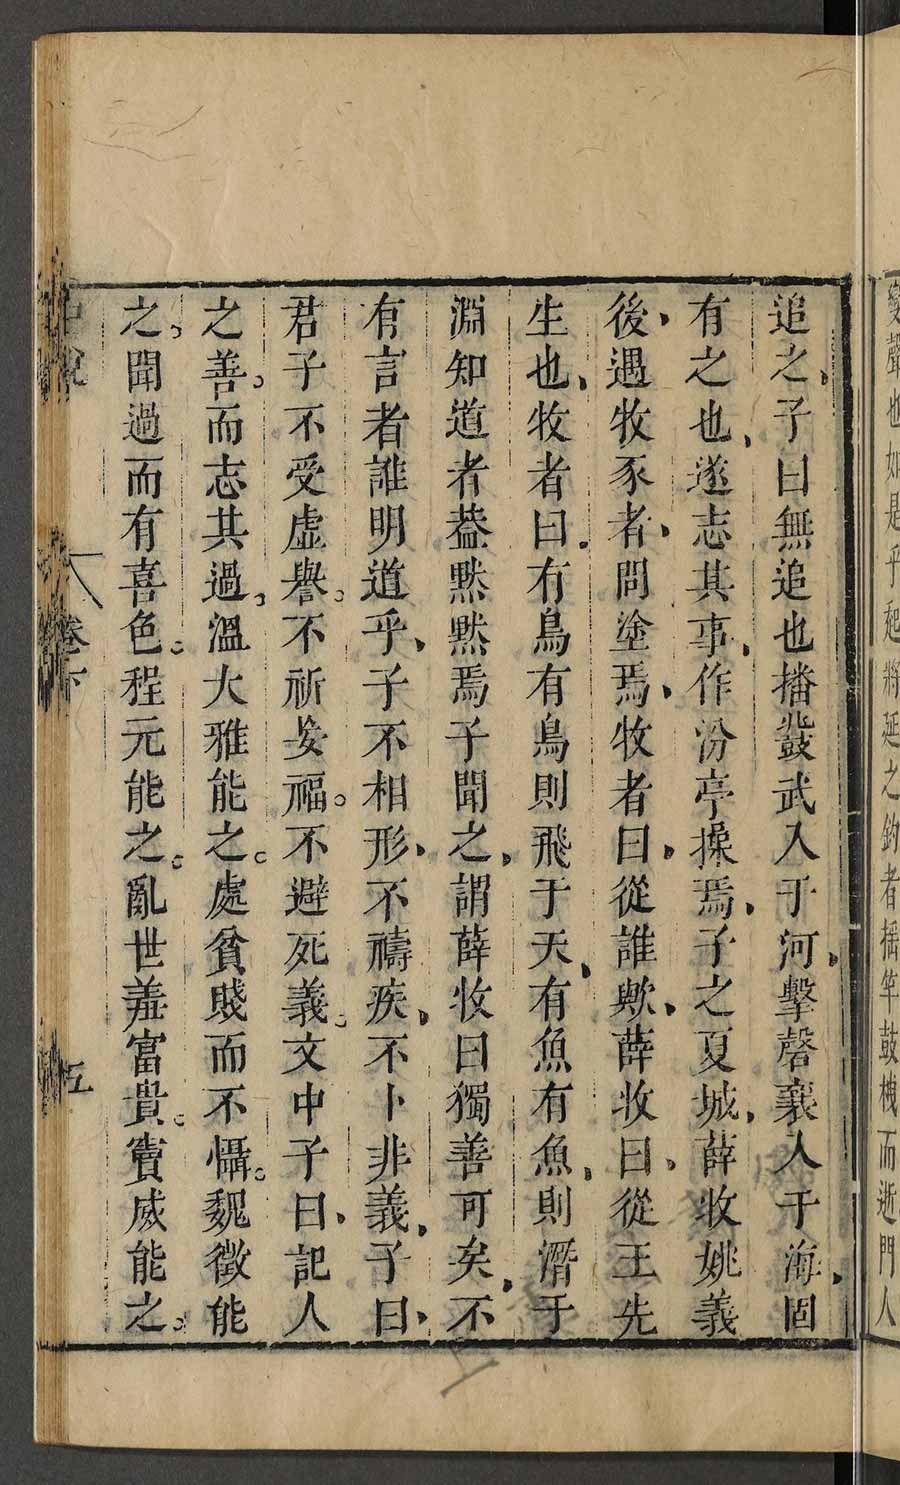 變聲也如是乎起將延之釣者搖竿鼓枻而逝門人
追之、子曰無追也播鼗武入于河、擊磬襄入于海、固
有之也、遂志其事、作汾亭操焉、子之夏城、薛收姚義
後、遇牧豕者、問塗焉、牧者曰、從誰歟、薛收曰、從王先
生也、牧者曰、有鳥有鳥則飛于天、有魚有魚、則潛于
淵知道者蓋默默焉子聞之、謂薛收曰獨善可矣、不
有言者誰明道乎、子不相形、不禱疾、不卜非義、子曰、
君子不受虛譽。不祈妄福。不避死義。文中子曰、記人
之善。而志其過。溫大雅能之。處貧賤而不懾。魏徵能
之。聞過而有喜色。程元能之。亂世羞富貴。竇威能之。
中說 卷下 五